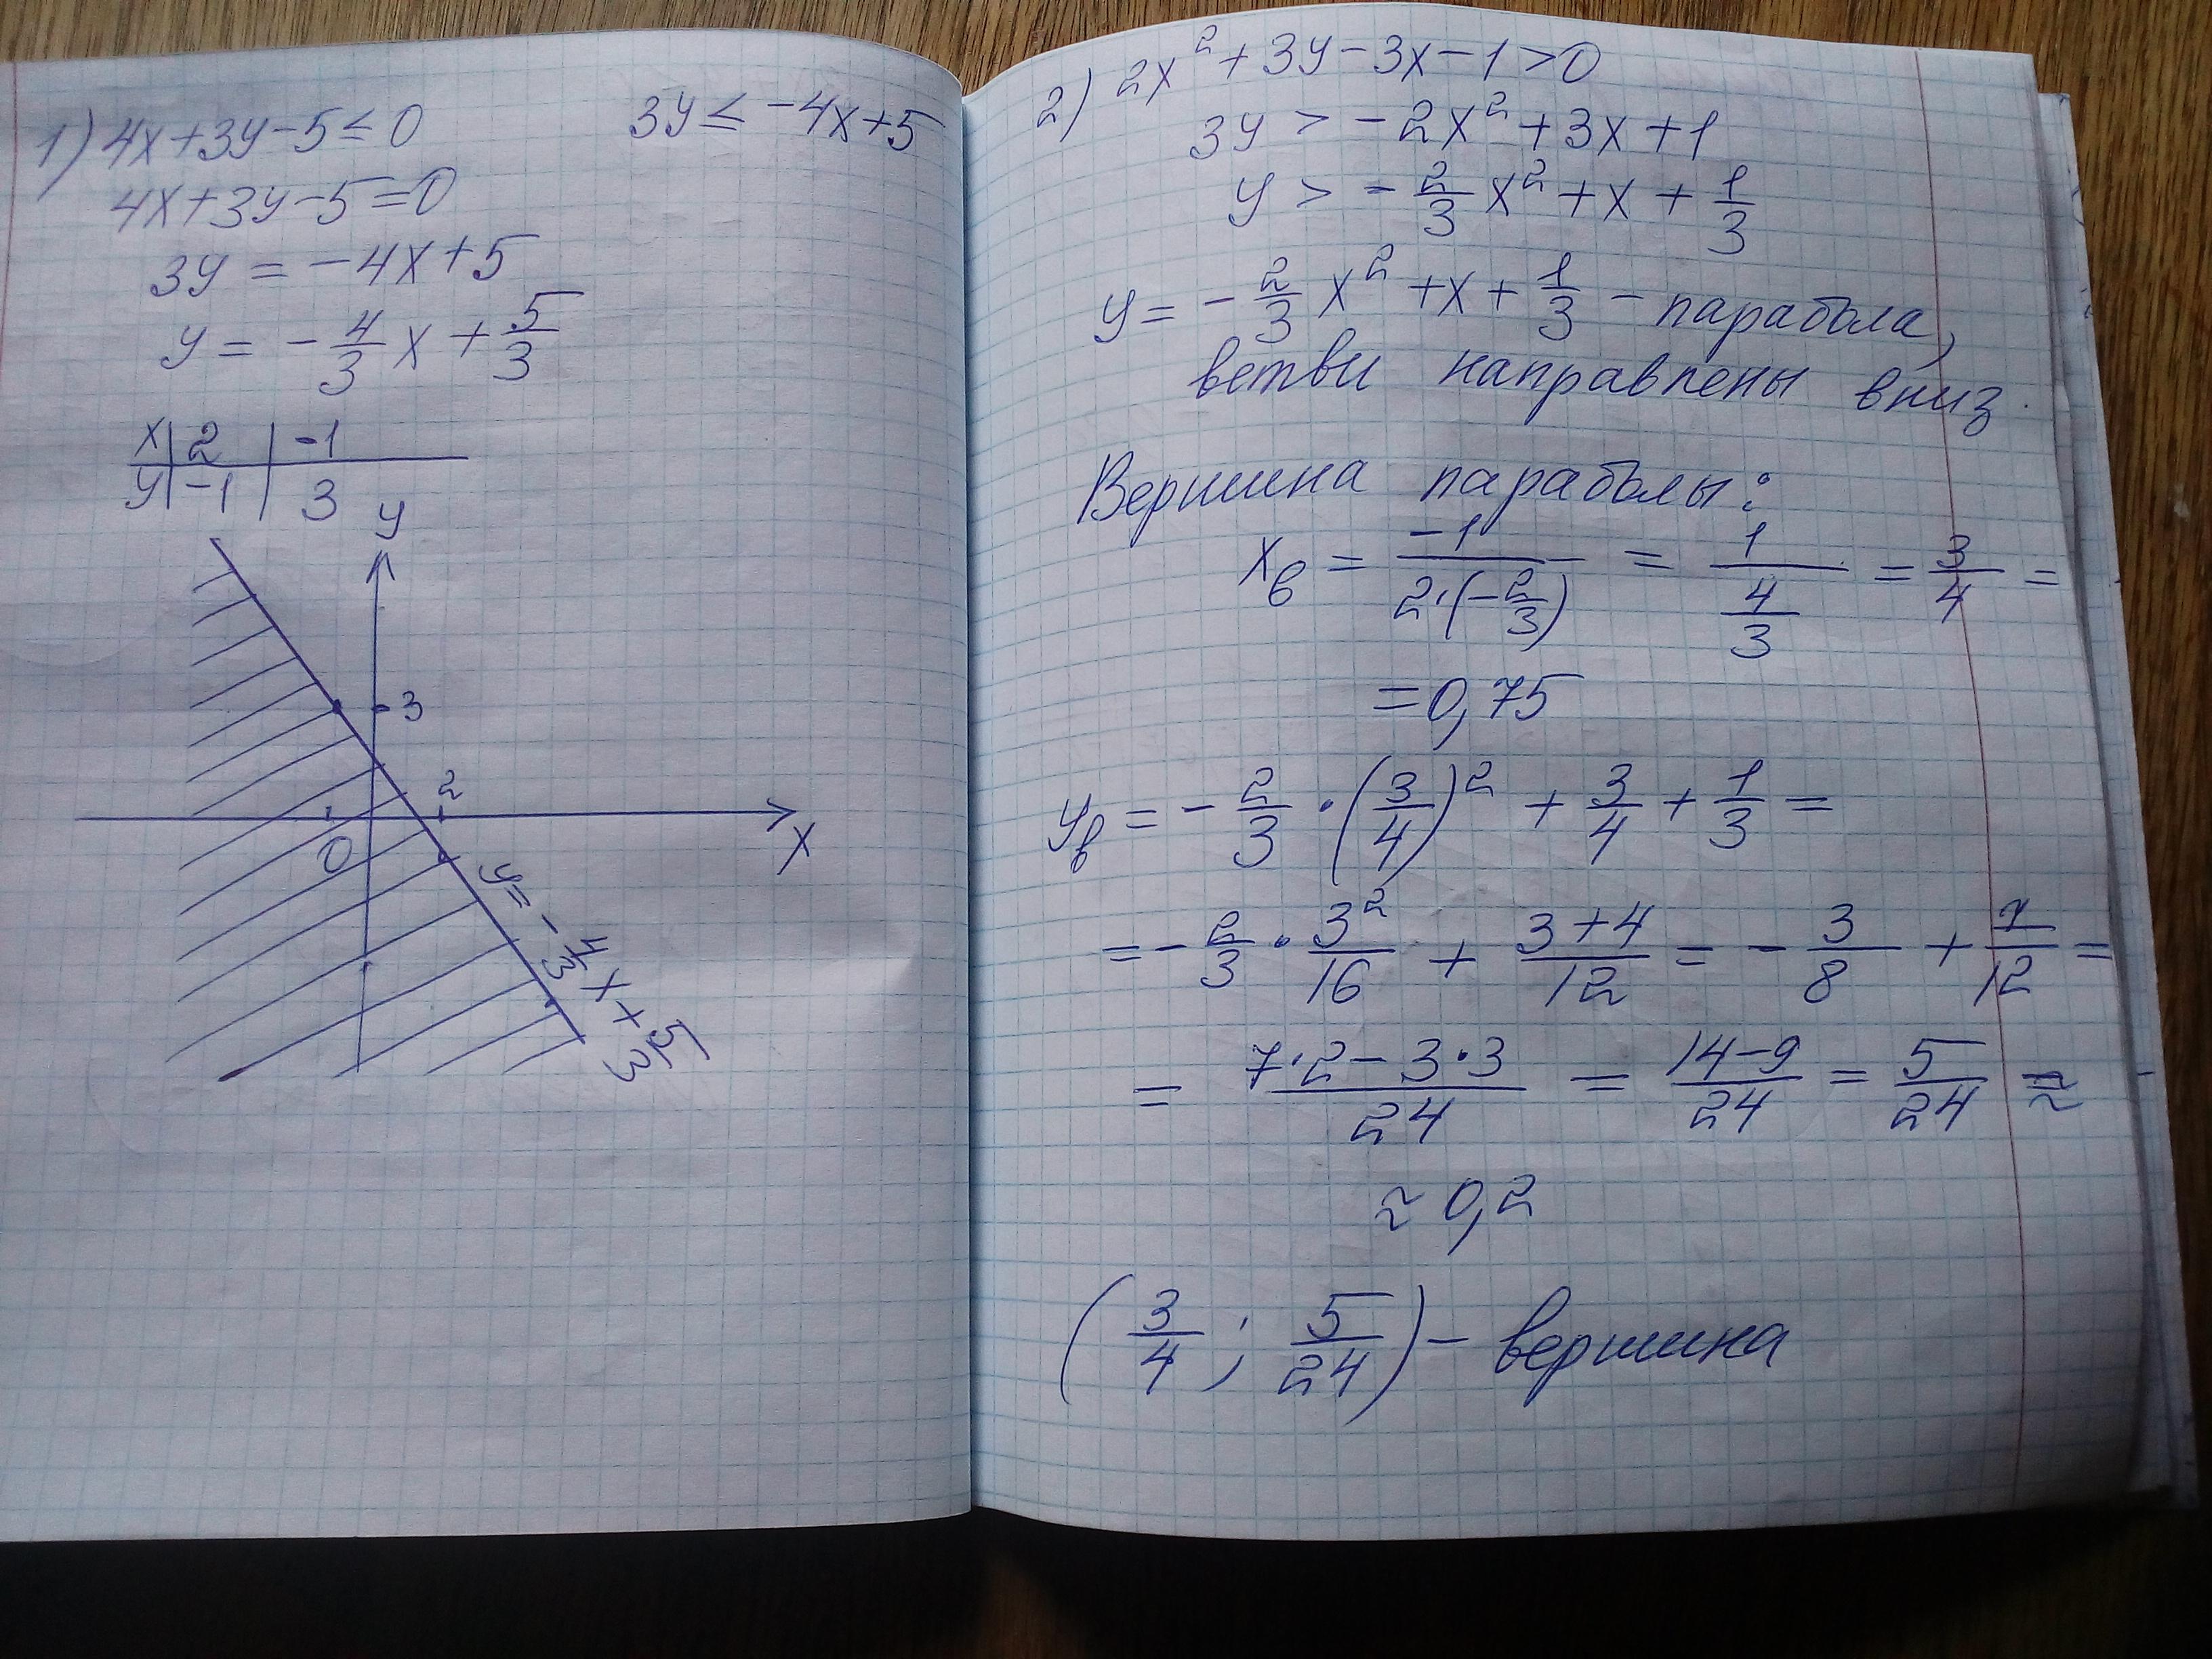 1) 4x+3y-5≤0
3y ≤ -4x+5
4x+3y-5=0
3y = -4x+5
y = -4/3 x + 5/3
x | 2 | -1
y | -1 | 3
y
3
2
0
x
y = -4/3 x + 5/3
2) 2x²+3y-3x-1>0
3y > -2x²+3x+1
y > -2/3 x² + x + 1/3
y = -2/3 x² + x + 1/3 - парабола,
ветви направлены вниз.
Вершина параболы:
xв = -1/(2·(-2/3)) = 1/(4/3) = 3/4 =
= 0,75
yв = -2/3 · (3/4)² + 3/4 + 1/3 =
= -2/3 · 3²/16 + (3+4)/12 = -3/8 + 7/12 =
= (7·2-3·3)/24 = (14-9)/24 = 5/24 ≈
≈ 0,2
(3/4 ; 5/24) - вершина